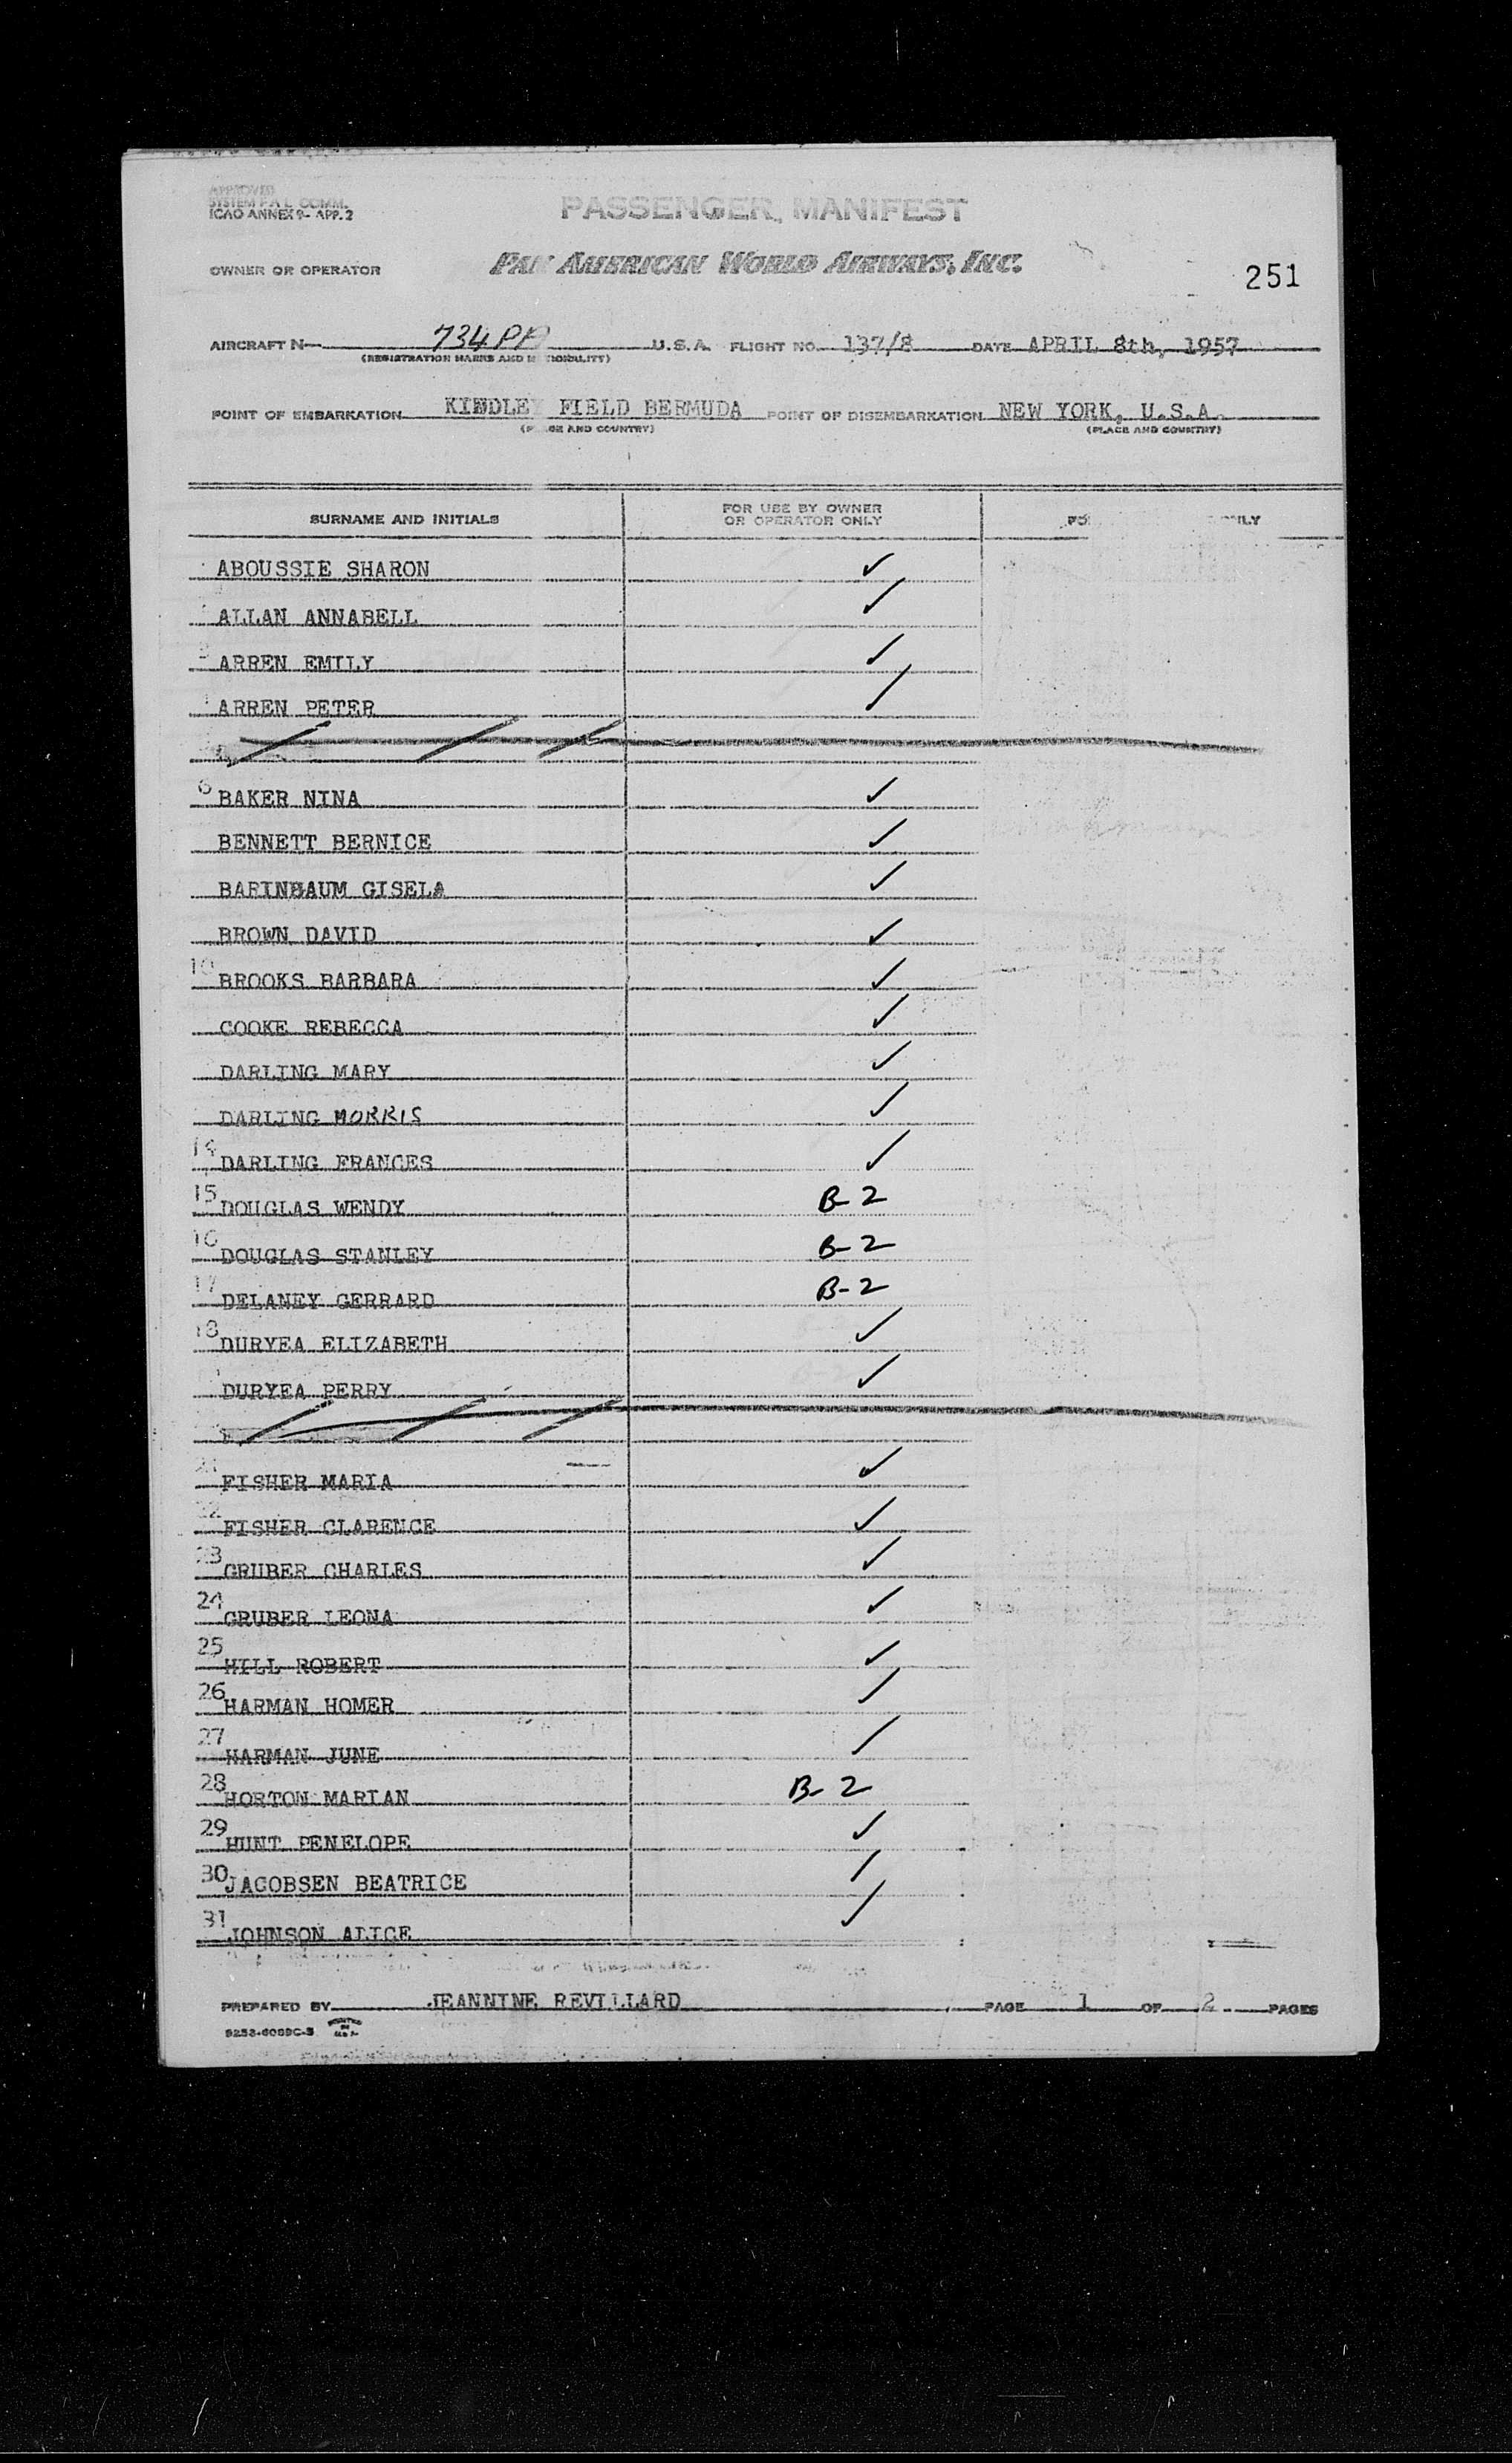 APPROVED
SYSTEM F.A.L. COMM.
ICAO ANNEX 9- APP. 2
PASSENGER MANIFEST
OWNER OR OPERATOR PAN AMERICAN WORLD AIRWAYS, INC.
251
AIRCRAFT N— 734 PA U.S.A. FLIGHT NO. 137/8 DATE APRIL 8th, 1957
POINT OF EMBARKATION KINDLEY FIELD BERMUDA POINT OF DISEMBARKATION NEW YORK, U.S.A.
(PLACE AND COUNTRY) (PLACE AND COUNTRY)
SURNAME AND INITIALS FOR USE BY OWNER OR OPERATOR ONLY ONLY
ABOUSSIE SHARON ✓
ALLAN ANNABELL ✓
ARREN EMILY ✓
ARREN PETER ✓
6 BAKER NINA ✓
BENNETT BERNICE ✓
BARINBAUM GISELA ✓
BROWN DAVID ✓
10 BROOKS BARBARA ✓
COOKE REBECCA ✓
DARLING MARY ✓
DARLING MORRIS ✓
14 DARLING FRANCES ✓
15 DOUGLAS WENDY B-2
16 DOUGLAS STANLEY B-2
17 DELANEY GERRARD B-2
18 DURYEA ELIZABETH ✓
DURYEA PERRY ✓
21 FISHER MARIA ✓
22 FISHER CLARENCE ✓
23 GRUBER CHARLES ✓
24 GRUBER LEONA ✓
25 HILL ROBERT ✓
26 HARMAN HOMER ✓
27 HARMAN JUNE ✓
28 HORTON MARIAN B-2
29 HUNT PENELOPE ✓
30 JACOBSEN BEATRICE ✓
31 JOHNSON ALICE ✓
PREPARED BY JEANNINE REVILLARD PAGE 1 OF 2 PAGES
PRINTED IN U.S.A.